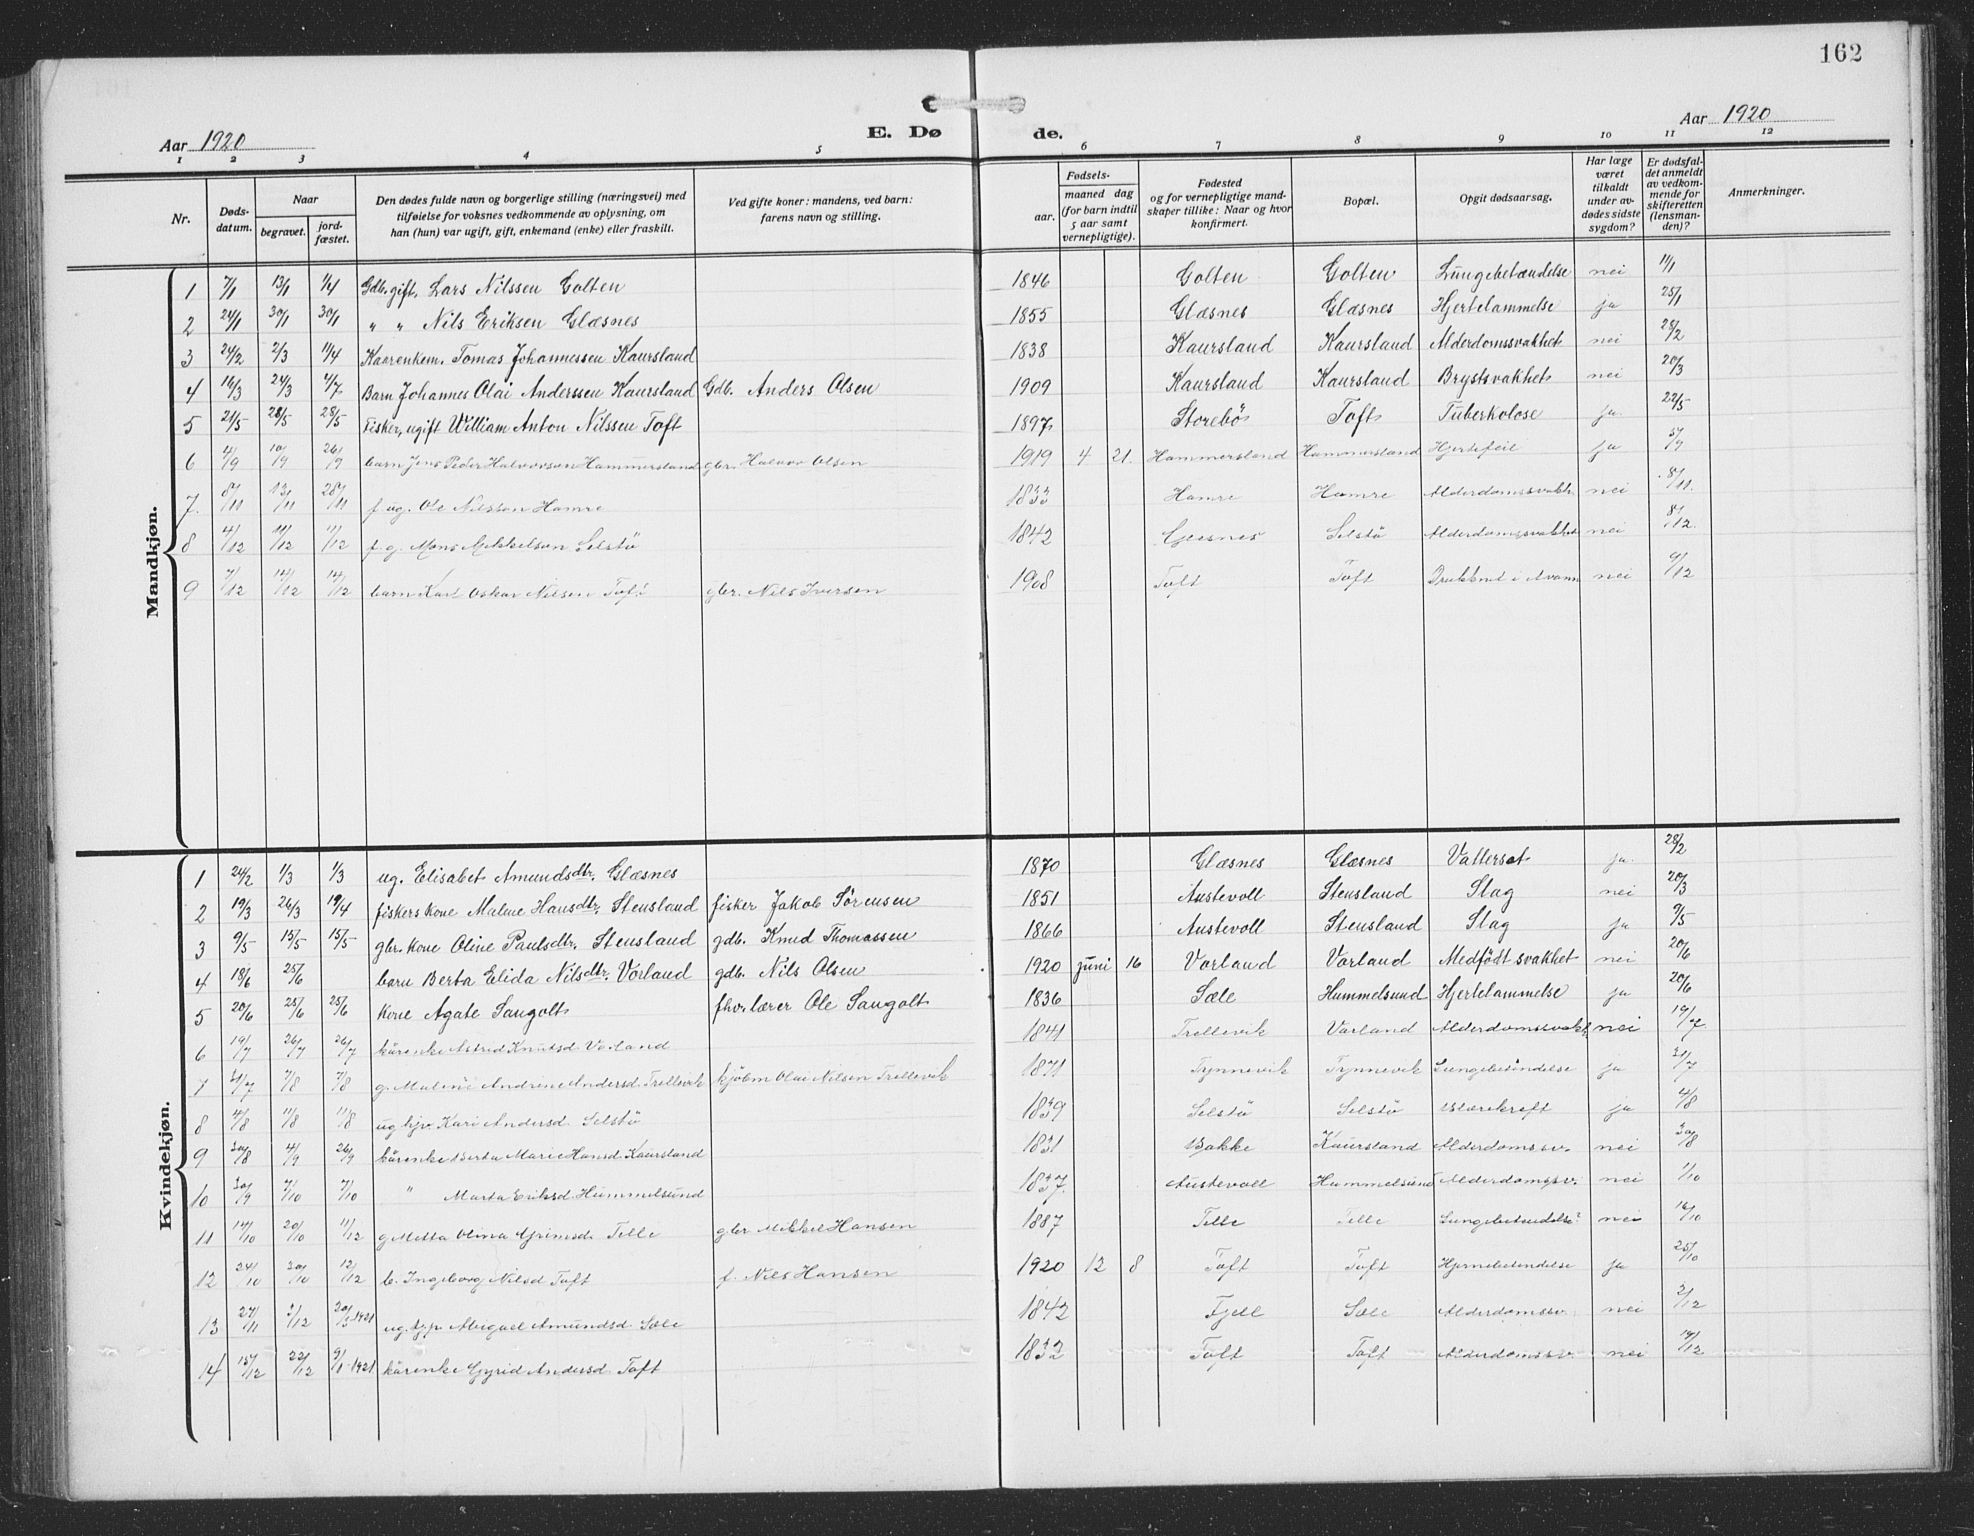 162
Aar 1920
E. Dø
de.
Aar 1920
1 2 3 4 5 6 7 8 9 10 11 12
Nr.
Døds-
datum.
Naar
begravet.
jord-
fæstet.
Den dødes fulde navn og borgerlige stilling (næringsvei) med
tilføielse for voksnes vedkommende av oplysning, om
han (hun) var ugift, gift, enkemand (enke) eller fraskilt.
Ved gifte koner: mandens, ved barn:
farens navn og stilling.
Fødsels-
aar.
maaned dag
(for barn indtil
5 aar samt
vernepligtige).
Fødested
og for vernepligtige mand-
skaper tillike: Naar og hvor
konfirmert.
Bopæl.
Opgit dødsaarsag.
Har læge
været
tilkaldt
under av-
dødes sidste
sygdom?
Er dødsfal-
det anmeldt
av vedkom-
mende for
skifteretten
(lensman-
den)?
Anmerkninger.
Mandkjøn.
1 7/1 13/1 1/4 Gdb. gift, Lars Nilssen Golten 1846 Golten Golten Lungebetændelse nei 11/1
2 24/1 30/1 30/1 " " Nils Eriksen Glæsnes 1855 Glæsnes Glæsnes Hjertelammelse ja 25/1
3 24/2 2/3 11/4 Kaarenkem. Tomas Johannessen Kaursland 1838 Kaursland Kaursland Alderdomssvakhet nei 28/2
4 16/3 24/3 4/7 Barn Johannes Olai Anderssen Kaursland Gdb. Anders Olsen 1909 Kaursland Kaursland Brystsvakhet nei 20/3
5 21/5 28/5 28/5 Fisker, ugift William Anton Nilssen Toft 1897 Storebø Toft Tuberkolose ja 22/5
6 4/9 10/9 26/9 barn Jens Peder Halvorson Hammersland gbr. Halvor Olsen 1919 4 21. Hammersland Hammersland Hjertefeil ja 5/9
7. 8/11 13/11 28/11 f. ug. Ole Nilsson Hamre 1833 Hamre Hamre Alderdomssvakh. nei 8/11.
8 4/12 11/12 11/12 f. g. Mons Mikkelson Selstø 1842 Selstø Alderdomssvakhet nei 8/12.
9 7/12 14/12 14/12 barn Karl Oskar Nilsen Toft gbr. Nils Iversen 1908 Toft Toft Druknet i nei 9/12
Kvindekjøn.
1 24/2 1/3 1/3 ug. Elisabet Amundsdtr. Glæsnes 1870 Glæsnes Glæsnes Vattersot ja 28/2
2 19/3 26/3 19/4 fiskers kone Malene Hansdtr. Stensland fisker Jakob Sørensen 1851 Austevoll Stensland Slag nei 20/3
3 9/5 15/5 15/5 gbr. kone Oline Paulsdtr. Stensland gdb. Knud Thomassen 1866 Austevoll Stensland Slag ja 9/5
4 18/6 25/6 barn Berta Elida Nilsdtr. Vorland gdb. Nils Olsen 1920 juni 16 Vorland Vorland Medfødt svakhet nei 20/6
5 20/6 25/6 25/6 kone Agate Sangolt fhv. lærer Ole Sangolt 1836 Sæle Hummelsund Hjertelammelse ja 20/6
6 19/7 26/7 26/7 kårenke Astrid Knutsd Vorland 1841 Trellevik Vorland Alderdomssvakh. nei 19/7.
7 31/7 7/8 7/8 g. Malene Andrine Andersd. Trellevik kjøbm Olai Nilsen Trellevik 1871 Tynnevik Tynnevik Lungebetændelse ja 31/7
8 4/8 11/8 11/8 ug hjp. Kari Andersd. Selstø 1839 Selstø Selstø Mavekreft ja 4/8
9 30/8 4/9 26/9 kårenke Berta Marie Hansd. Kaursland 1831 Bakke Kaursland Alderdomssv. nei 30/8
10 30/9 7/10 7/10 " Marta Eriksd Hummelsund 1837. Austevoll Hummelsund Alderdomssv. nei 1/10
11 14/10 20/10 11/12 g Metta Olina Grimsd. Telle gbr Mikkel Hansen 1887 Telle Telle Lungebetendelse nei 16/10
12 24/10 30/10 12/12 b. Ingeborg Nilsd Toft f. Nils Hansen 1920 12 8 Toft Toft Hjernebetendelse ja 25/10
13 27/11 2/12 20/3 1921 ug. hjp Abigael Amundsd. Sæle 1842 Fjell Sæle Alderdomssv. nei 2/12
14 15/12 22/12 9/1 1921 kårenke Gyrid Andersd Toft 1832 Toft Toft Alderdomssv. nei 19/12